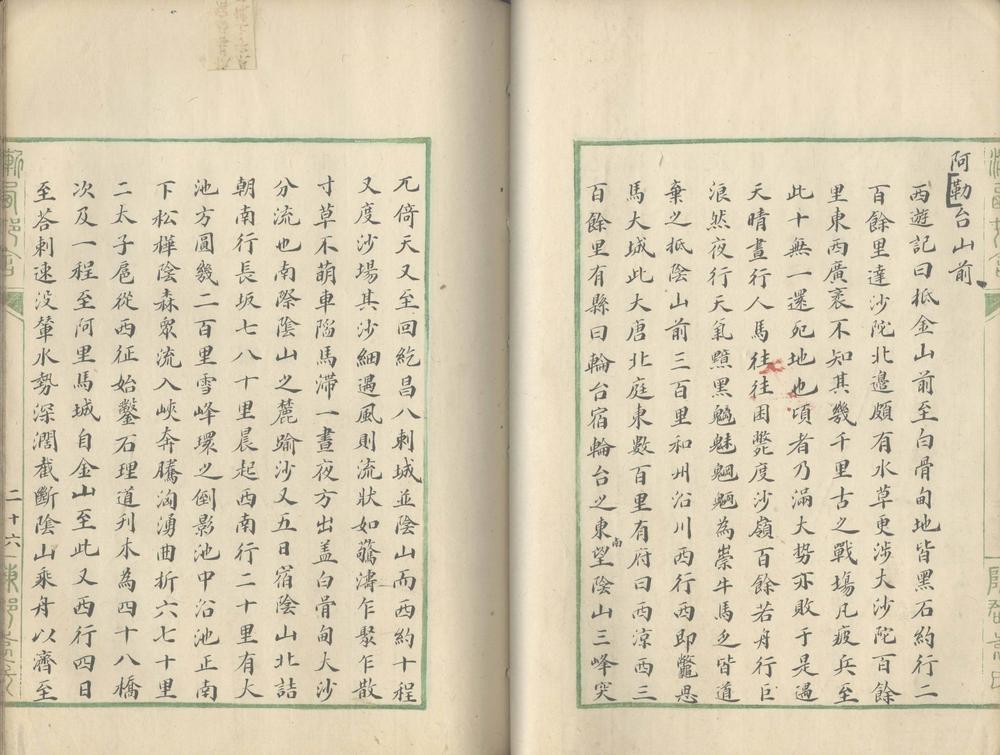 阿勒台山前
西遊記曰抵金山前至白骨甸地皆黑石約行二
百餘里達沙陀北邊頗有水草更涉大沙陀百餘
里東西廣袤不知其幾千里古之戰場凡疲兵至
此十無一還死地也頃者乃滿大势亦敗于是過
天晴晝行人馬往往困斃度沙嶺百餘若舟行巨
浪然夜行天氣黯黑魑魅魍魎為祟牛馬乏皆道
棄之抵陰山前三百里和州沿川西行西即鼈思
馬大城此大唐北庭東數百里有府曰西涼西三
百餘里有縣曰輪台宿輪台之東南望陰山三峰突
兀倚天又至回紇昌八剌城並陰山而西約十程
又度沙場其沙細遇風則流狀如驚濤乍聚乍散
寸草不萌車陷馬滯一晝夜方出盖白骨甸大沙
分流也南際陰山之麓踰沙又五日宿陰山北詰
朝南行長坂七八十里晨起西南行二十里有大
池方圓幾二百里雪峰環之倒影池中沿池正南
下松樺陰森衆流入峽奔騰洶湧曲折六七十里
二太子扈從西征始鑿石理道刋木為四十八橋
次及一程至阿里馬城自金山至此又西行四日
至荅剌速没輦水勢深濶截斷陰山乘舟以濟至
二十六